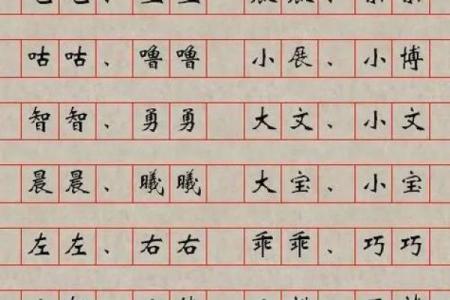 咕咕、噜噜 小展、小博
智智、勇勇 大文、小文
晨晨、曦曦 大宝、小宝
左左、右右 乖乖、巧巧